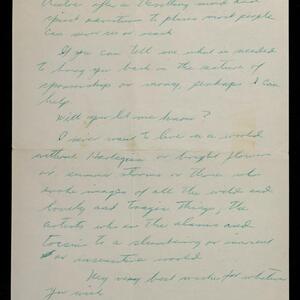 after a travelling mind and
spirit adventure to places most people
can never see or reach
If you can tell me what is needed
to bring you back in the nature of
sponsorship or money, perhaps I can
help
Will you let me know?
I never want to live in a world
without Harlequin or bright flowers
or summer storms or those who
evoke images of all the world and
lovely and tragic things, the
artists who are the alarums and
tocsin to a slumbering or
or insensitive world
My very best wishes for whatever
you wish